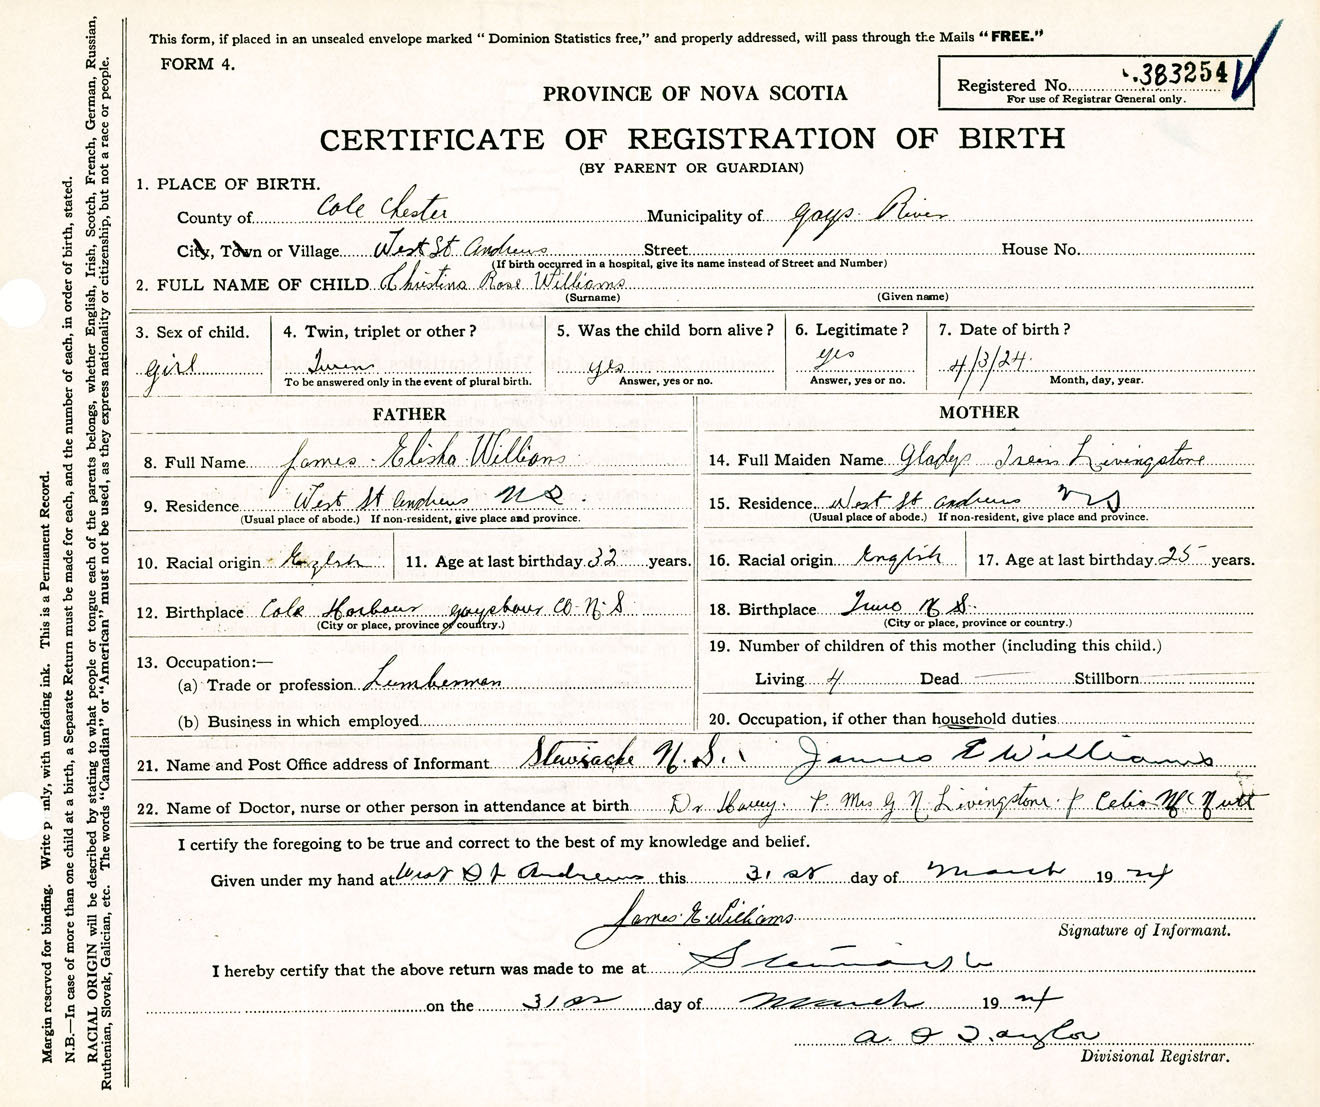 This form, if placed in an unsealed envelope marked “ Dominion Statistics free,” and properly addressed, will pass through the Mails “ FREE.”
FORM 4.
Registered No. 383254
For use of Registrar General only.
PROVINCE OF NOVA SCOTIA
CERTIFICATE OF REGISTRATION OF BIRTH
(BY PARENT OR GUARDIAN)
1. PLACE OF BIRTH.
County of Cole Chester Municipality of Gays River
City, Town or Village West St Andrews Street House No.
(If birth occurred in a hospital, give its name instead of Street and Number)
2. FULL NAME OF CHILD Christina Rose Williams
(Surname) (Given name)
3. Sex of child. 4. Twin, triplet or other ? 5. Was the child born alive ? 6. Legitimate ? 7. Date of birth ?
girl Twins yes yes 4/3/24
To be answered only in the event of plural birth. Answer, yes or no. Answer, yes or no. Month, day, year.
FATHER MOTHER
8. Full Name James Elisha Williams 14. Full Maiden Name Gladys Livingstone
9. Residence West St Andrews N S 15. Residence West St Andrews N S
(Usual place of abode.) If non-resident, give place and province. (Usual place of abode.) If non-resident, give place and province.
10. Racial origin English 11. Age at last birthday 32 years. 16. Racial origin English 17. Age at last birthday 25 years.
12. Birthplace Cole Harbour Co. N. S 18. Birthplace Truro N S.
(City or place, province or country.) (City or place, province or country.)
19. Number of children of this mother (including this child.)
13. Occupation:—
(a) Trade or profession Lumberman Living 4 Dead Stillborn
(b) Business in which employed 20. Occupation, if other than household duties
21. Name and Post Office address of Informant Stewiacke N. S. James E Williams
22. Name of Doctor, nurse or other person in attendance at birth Dr Mrs G N Livingstone Celia McNutt
I certify the foregoing to be true and correct to the best of my knowledge and belief.
Given under my hand at West St Andrews this 31st day of March 1924
James E. Williams
Signature of Informant.
I hereby certify that the above return was made to me at Stewiacke
on the 31st day of March 1924
Taylor
Divisional Registrar.
Margin reserved for binding. Write p nly, with unfading ink. This is a Permanent Record.
N.B.—In case of more than one child at a birth, a Separate Return must be made for each, and the number of each, in order of birth, stated.
RACIAL ORIGIN will be described by stating to what people or tongue each of the parents belongs, whether English, Irish, Scotch, French, German, Russian,
Ruthenian, Slovak, Galician, etc. The words “Canadian” or “American” must not be used, as they express nationality or citizenship, but not a race or people.